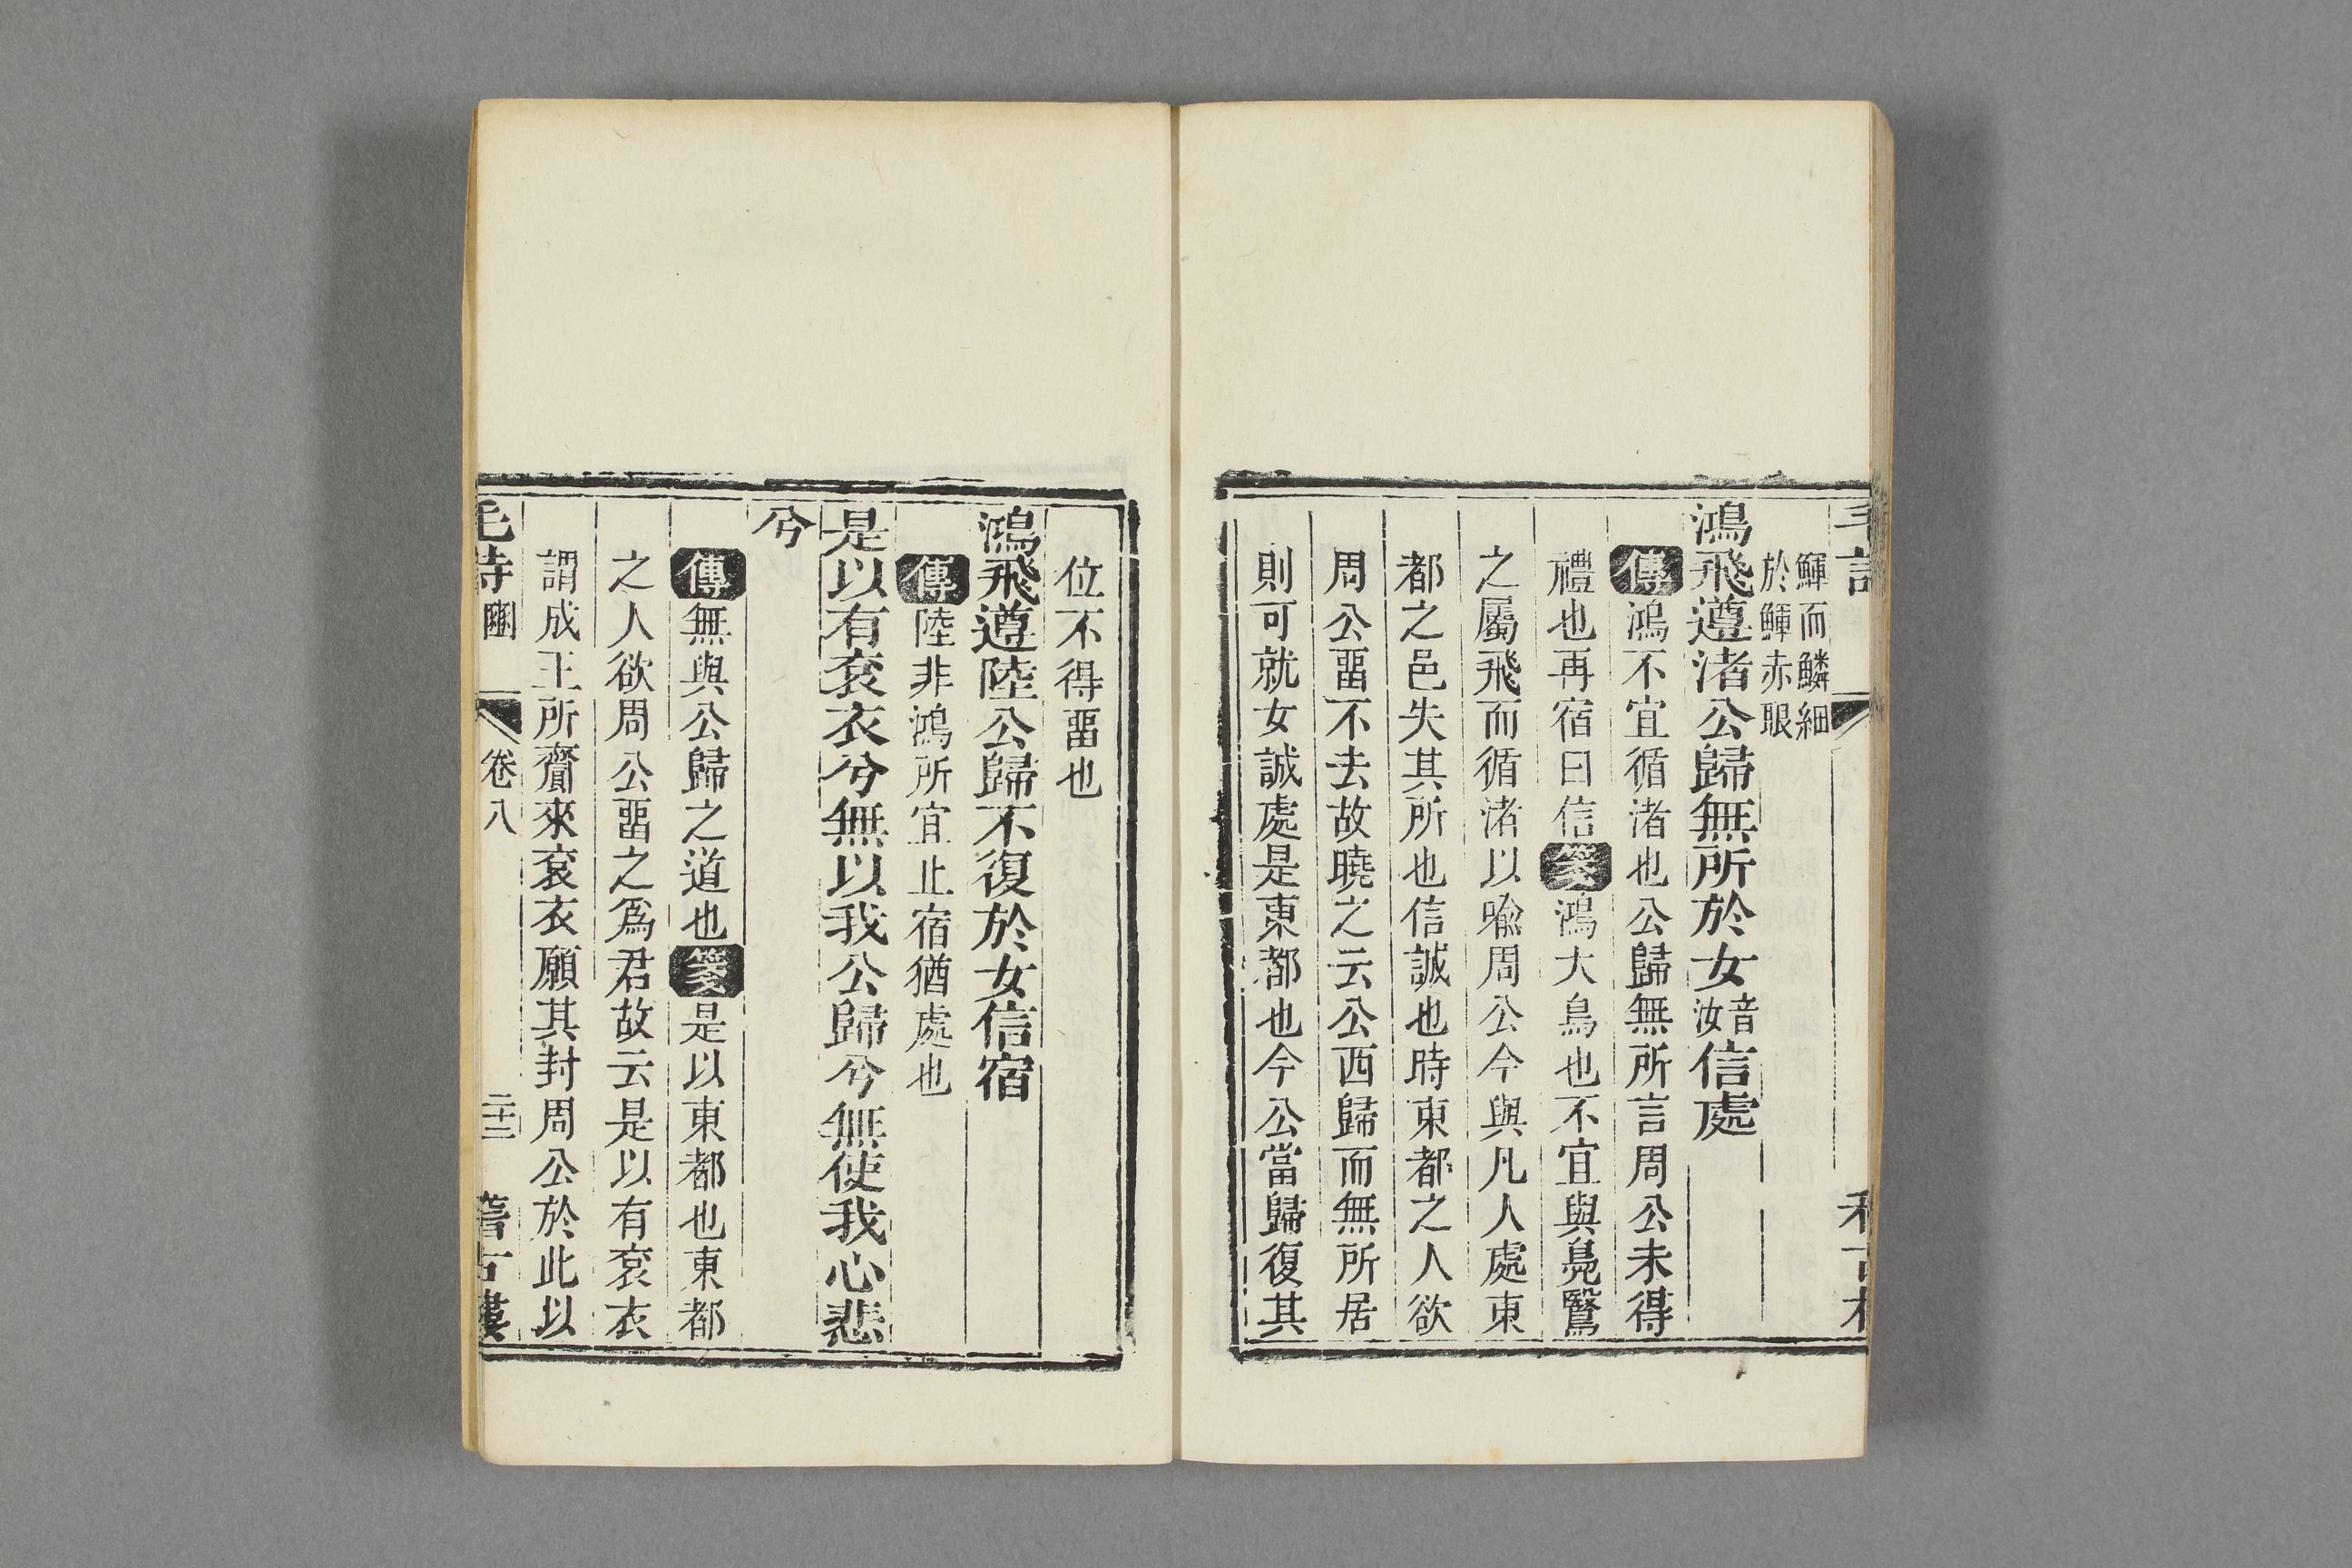 鯶而鱗細
於鯶赤眼
鴻飛遵渚公歸無所於女音汝信處
傳鴻不宜循渚也公歸無所言周公未得
禮也再宿曰信箋鴻大鳥也不宜與鳧鷖
之屬飛而循渚以喻周公今與凡人處東
都之邑失其所也信誠也時東都之人欲
周公畱不去故曉之云公西歸而無所居
則可就女誠處是東都也今公當歸復其
位不得畱也
鴻飛遵陸公歸不復於女信宿
傳陸非鴻所宜止宿猶處也
是以有袞衣兮無以我公歸兮無使我心悲
兮
傳無與公歸之道也箋是以東都也東都
之人欲周公畱之爲君故云是以有袞衣
謂成王所齎來袞衣願其封周公於此以
毛詩 豳 卷八 二十三